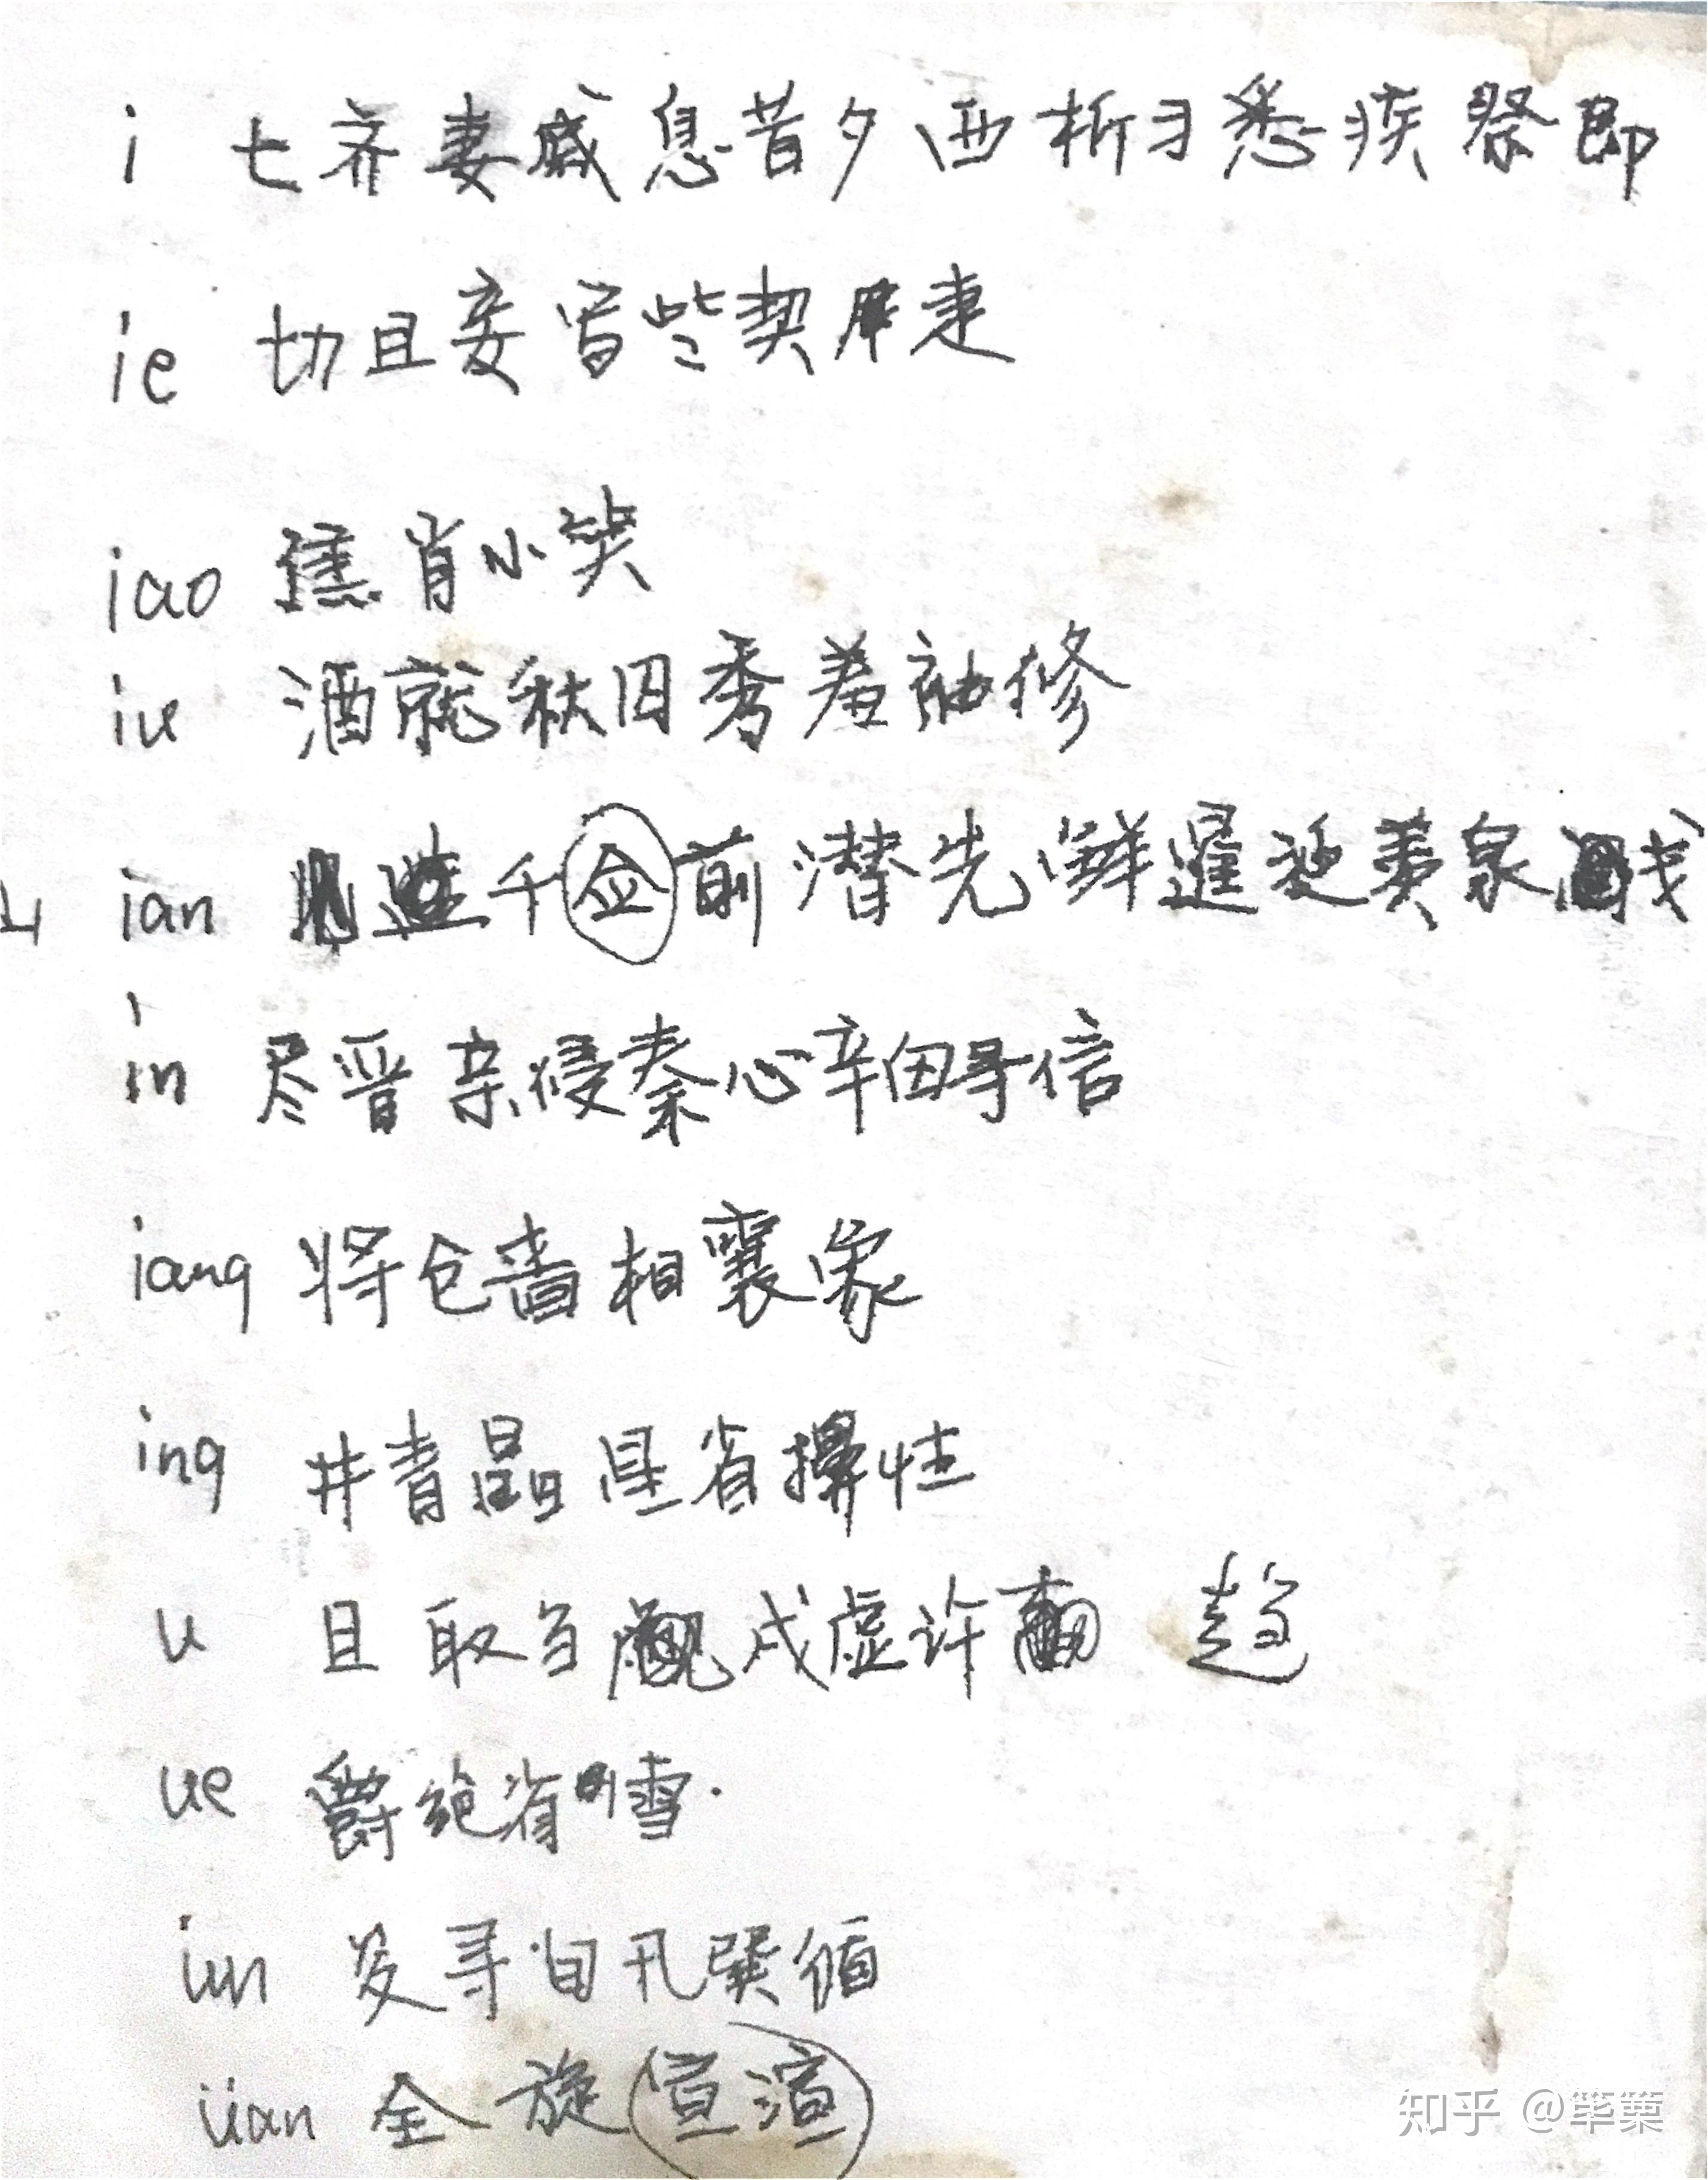 i 七齐妻戚息昔夕西析习悉疾祭即
ie 切且妾写些契疌
iao 焦肖小笑
iu 酒就秋囚秀羞袖修
ian 千佥前潜先鲜暹涎羡泉戋
in 尽晋亲侵秦心辛囟寻信
iang 将仓啬相襄象
ing 井青晶星省擤性
u 且取刍觑戌虚许 趋
ue 爵绝雀雪
iun 夋寻旬卂巽循
üan 全旋宣渲
知乎 @筚篥